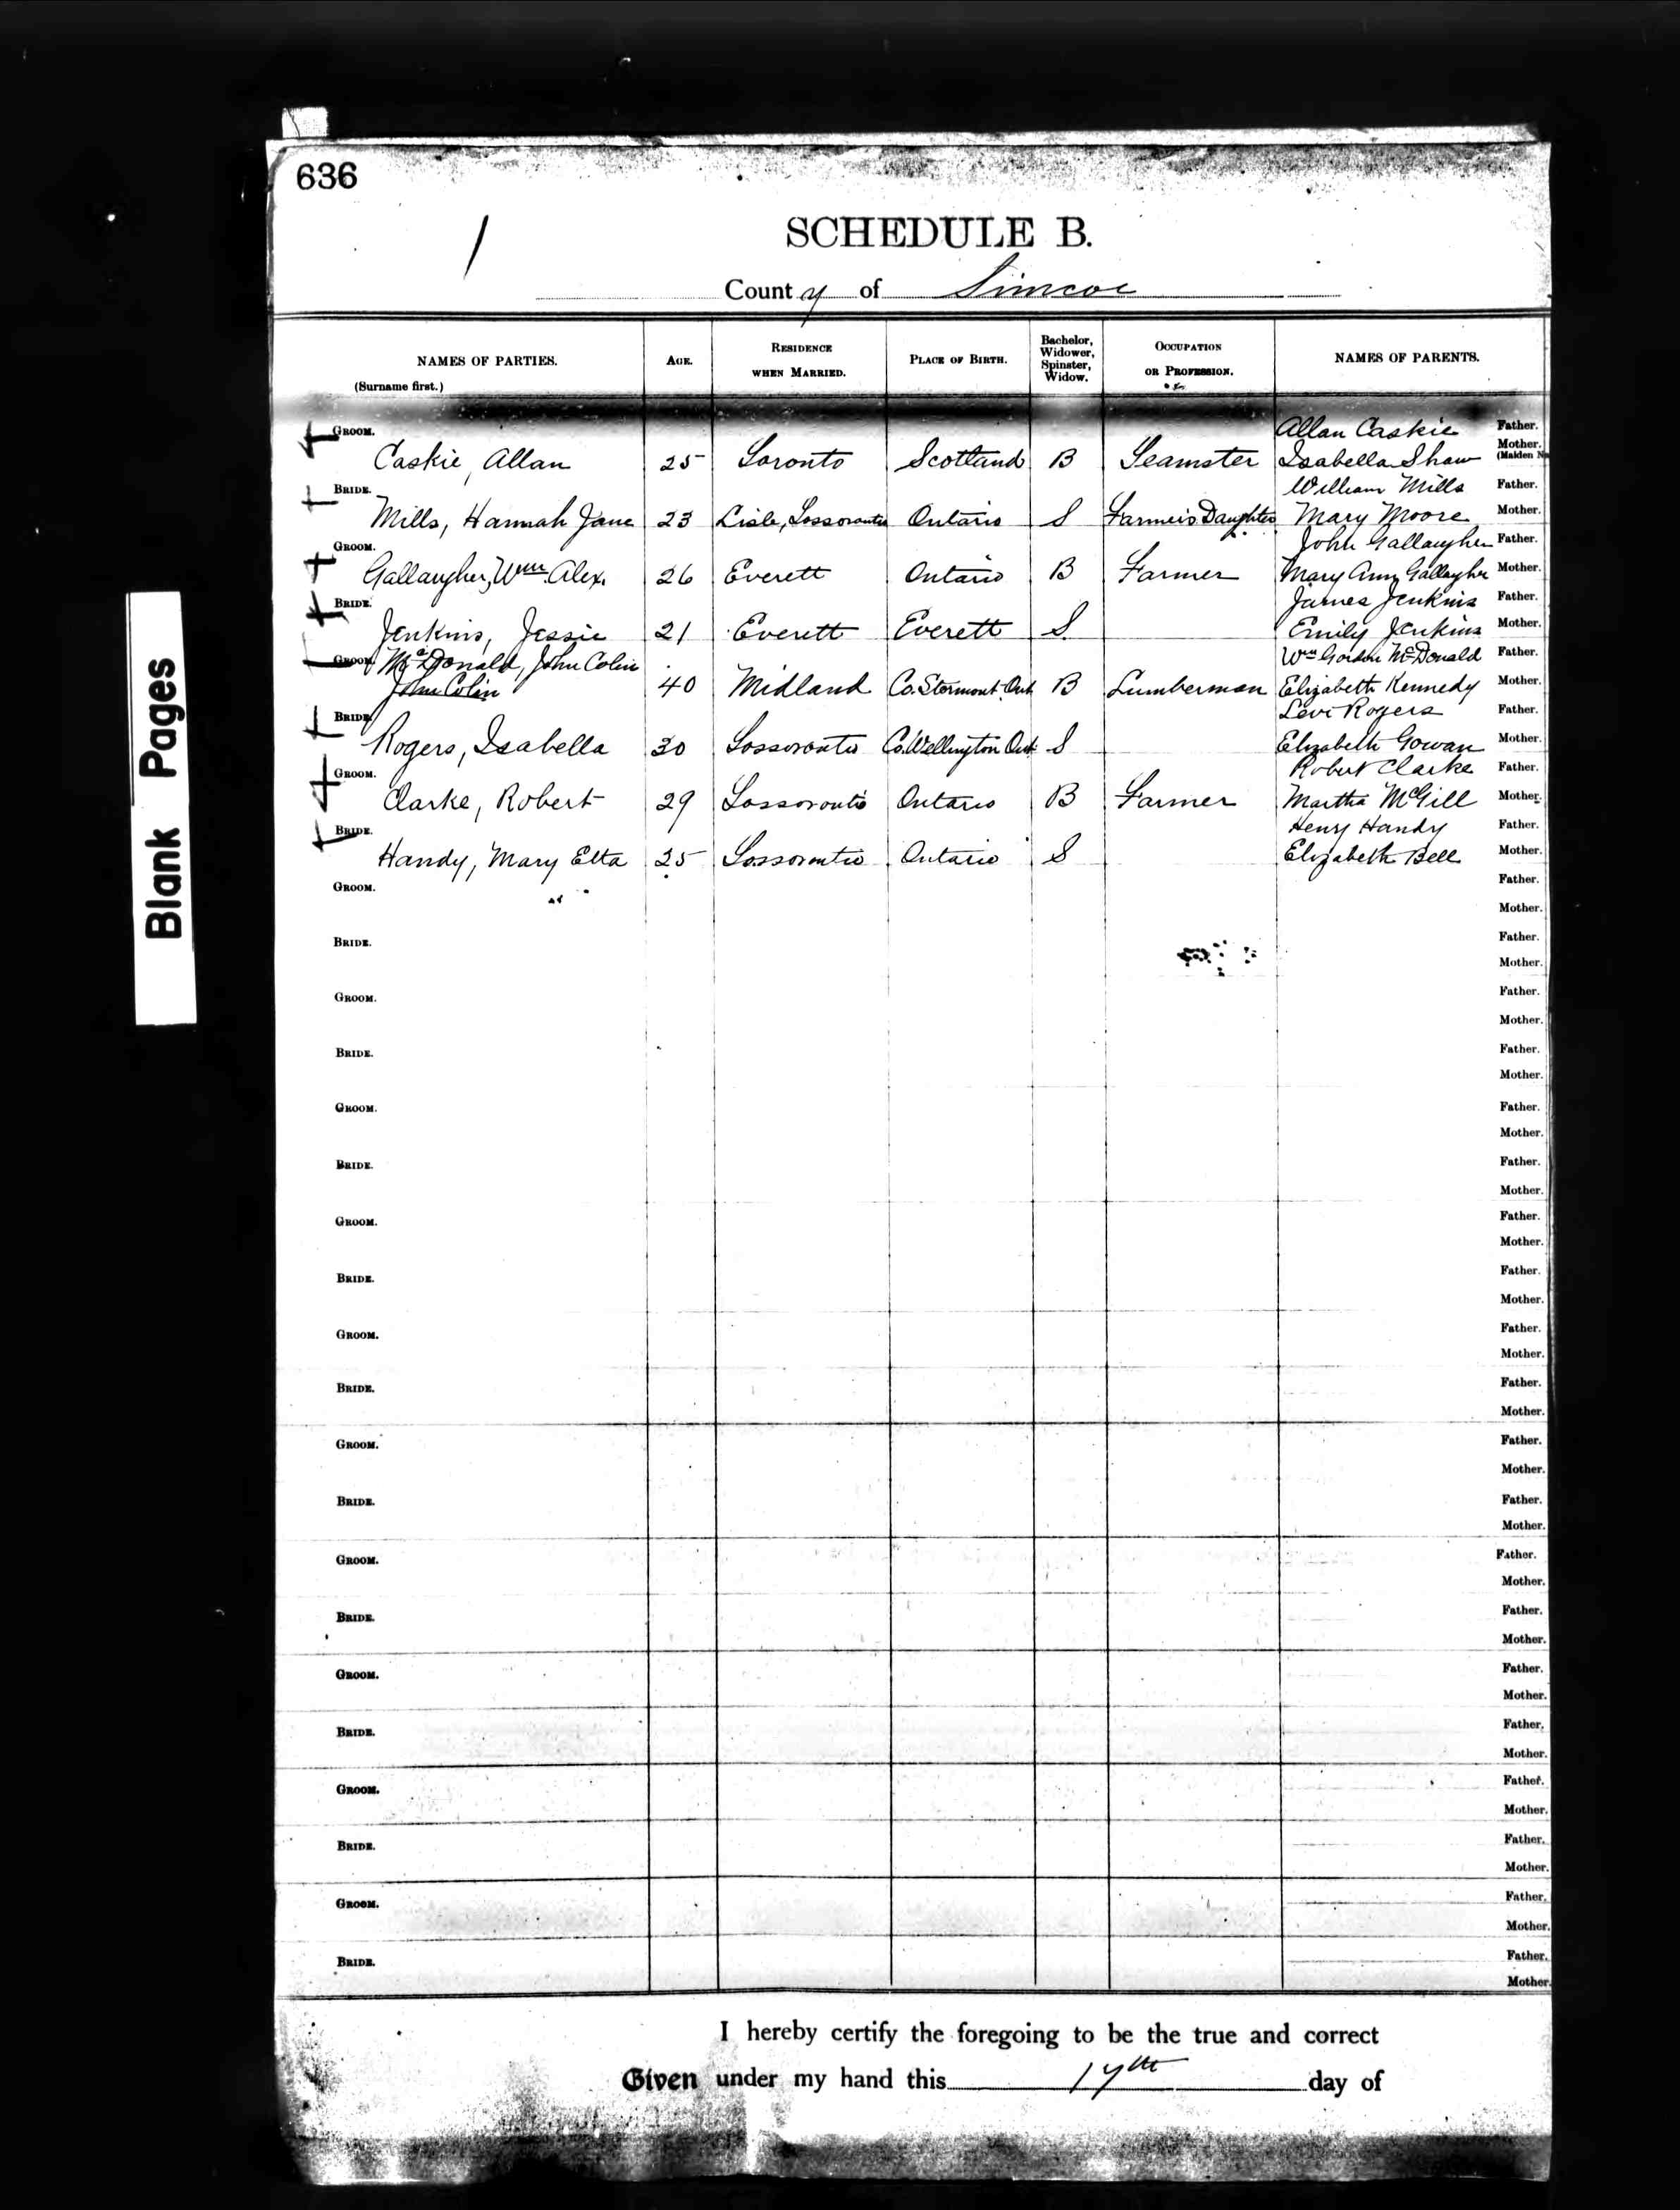 636
SCHEDULE B.
County of Simcoe
NAMES OF PARTIES. (Surname first.) AGE. RESIDENCE WHEN MARRIED. PLACE OF BIRTH. Bachelor, Widower, Spinster, Widow. OCCUPATION OR PROFESSION. NAMES OF PARENTS.
GROOM. Allan Caskie Father.
Caskie, Allan 25 Toronto Scotland B Teamster Isabella Shaw Mother. (Maiden
BRIDE. William Mills Father.
Mills, Hannah Jane 23 Lisle, Tossorontio Ontario S Farmer's Daughter Mary Moore Mother.
GROOM. John Gallaugher Father.
Gallaugher, Wm. Alex. 26 Everett Ontario B Farmer Mary Ann Gallagher Mother.
BRIDE. James Jenkins Father.
Jenkins, Jessie 21 Everett Everett S. Emily Jenkins Mother.
GROOM. McDonald, John Colin Wm Gordon McDonald Father.
John Colin 40 Midland Co. Stormont Ont B Lumberman Elizabeth Kennedy Mother.
BRIDE. Levi Rogers Father.
Rogers, Isabella 30 Tossorontio Co. Wellington Ont S Elizabeth Gowan Mother.
GROOM. Robert Clarke Father.
Clarke, Robert 29 Tossorontio Ontario B Farmer Martha McGill Mother.
BRIDE. Henry Handy Father.
Handy, Mary Etta 25 Tossorontio Ontario S Elizabeth Bell Mother.
GROOM. Father.
Mother.
BRIDE. Father.
Mother.
GROOM. Father.
Mother.
BRIDE. Father.
Mother.
GROOM. Father.
Mother.
BRIDE. Father.
Mother.
GROOM. Father.
Mother.
BRIDE. Father.
Mother.
GROOM. Father.
Mother.
BRIDE. Father.
Mother.
GROOM. Father.
Mother.
BRIDE. Father.
Mother.
GROOM. Father.
Mother.
BRIDE. Father.
Mother.
GROOM. Father.
Mother.
BRIDE. Father.
Mother.
GROOM. Father.
Mother.
BRIDE. Father.
Mother.
GROOM. Father.
Mother.
BRIDE. Father.
Mother.
I hereby certify the foregoing to be the true and correct
Given under my hand this 17th day of
Blank Pages